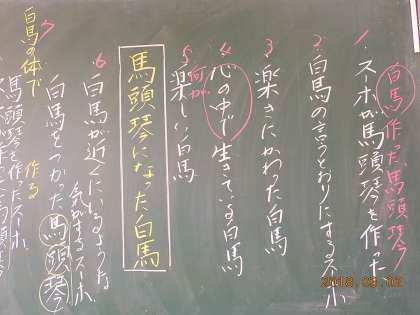 白馬作った馬頭琴
1 スーホが馬頭琴を作った
2 白馬の言うとおりにするスーホ
3 楽きにかわった白馬
4 心の中で生きている白馬
何が
5 楽しい白馬
馬頭琴になった白馬
6 白馬が近くにいるような
気がするスーホ
白馬をつかった馬頭琴
7 白馬の体で作る
馬頭琴を作ったスーホ
2018.03.02